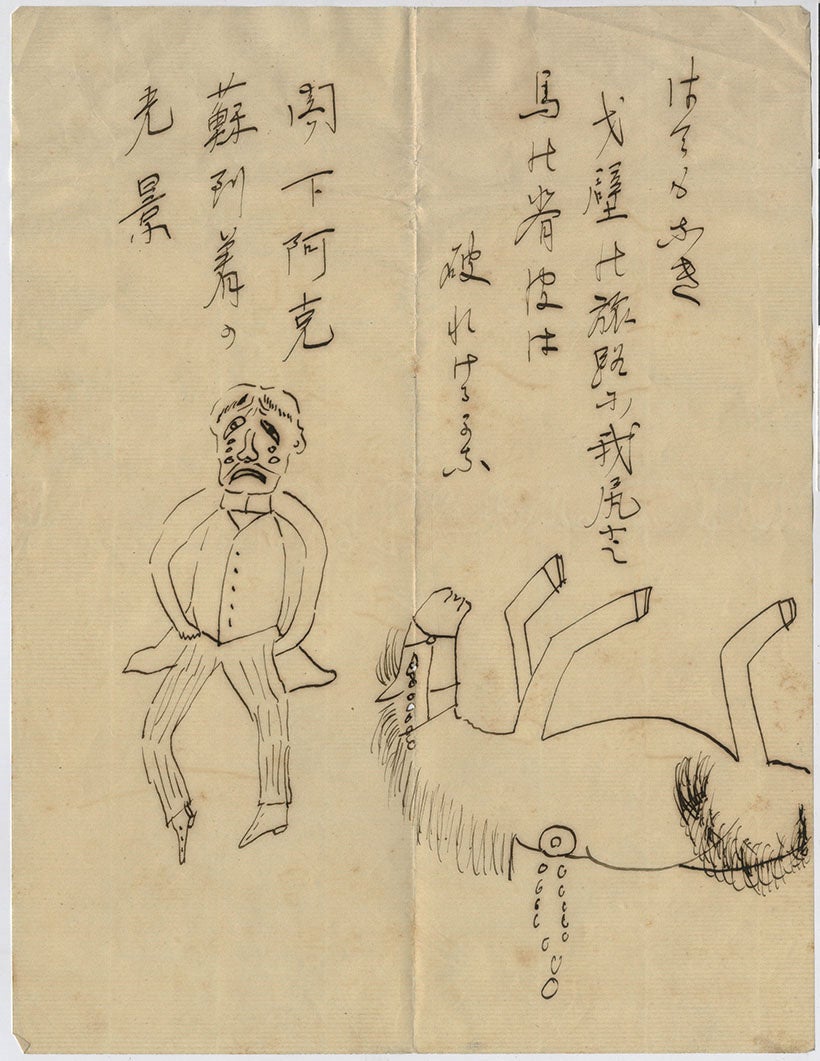 はてもなき
戈壁の旅路に我尻と
馬の脊皮は
破れけるかな
閣下阿克
蘇到着の
光景